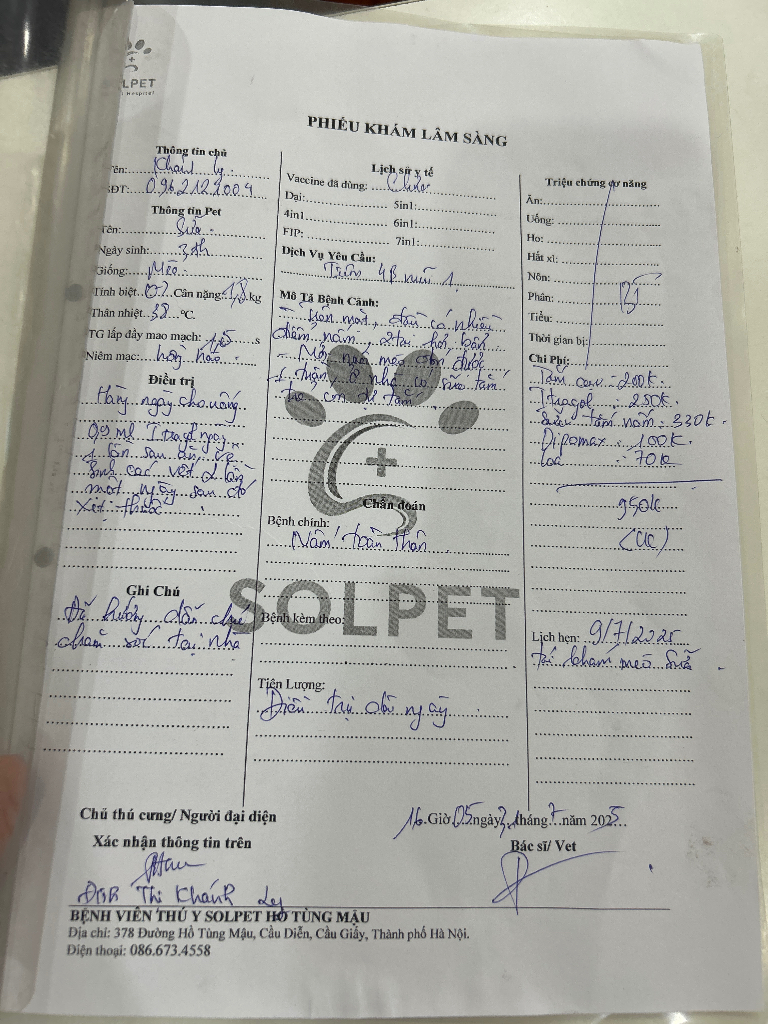 SOLPET
PHIẾU KHÁM LÂM SÀNG
Thông tin chủ
Tên: Khánh Ly
SĐT: 0962122004
Thông tin Pet
Tên: Sữa
Ngày sinh: 3th
Giống: Mèo
Tính biệt: Cân nặng: 1,8 kg
Thân nhiệt: 38 °C.
TG lấp đầy mao mạch: 1,5 s
Niêm mạc: hồng hào
Điều trị
Hàng ngày cho uống
0,9 ml Itragol ngày
1 lần sau ăn, vệ
sinh các vết 2 lần
một ngày sau đó
xịt thuốc
Ghi Chú
Đã hướng dẫn chủ
chăm sóc tại nhà
Lịch sử y tế
Vaccine đã dùng: Chưa
Dại: 5in1:
4in1 6in1:
FIP: 7in1:
Dịch Vụ Yêu Cầu:
Mô Tả Bệnh Cảnh:
có nhiều
điểm nấm, 2 tai hơi bẩn
- Mới nuôi mèo được
1 tuần, ở nhà có sữa tắm
Chẩn đoán
Bệnh chính:
Nấm toàn thân
SOLPET
Bệnh kèm theo:
Tiên Lượng:
Điều trị dài ngày
Triệu chứng cơ năng
Ăn:
Uống:
Ho:
Hắt xì:
Nôn:
Phân:
Tiểu:
Thời gian bị:
BT
Chi Phí:
200k
Itragol: 250k
Sữa tắm nấm: 330k
Dipomax: 100k
Loa: 70k
950k
(CK)
Lịch hẹn: 9/7/2025
tái khám mèo Sữa
Chủ thú cưng/ Người đại diện
Xác nhận thông tin trên
Thị Khánh Ly
16 Giờ 05 ngày 3 tháng 7 năm 2025
Bác sĩ/ Vet
BỆNH VIỆN THÚ Y SOLPET HỒ TÙNG MẬU
Địa chỉ: 378 Đường Hồ Tùng Mậu, Cầu Diễn, Cầu Giấy, Thành phố Hà Nội.
Điện thoại: 086.673.4558